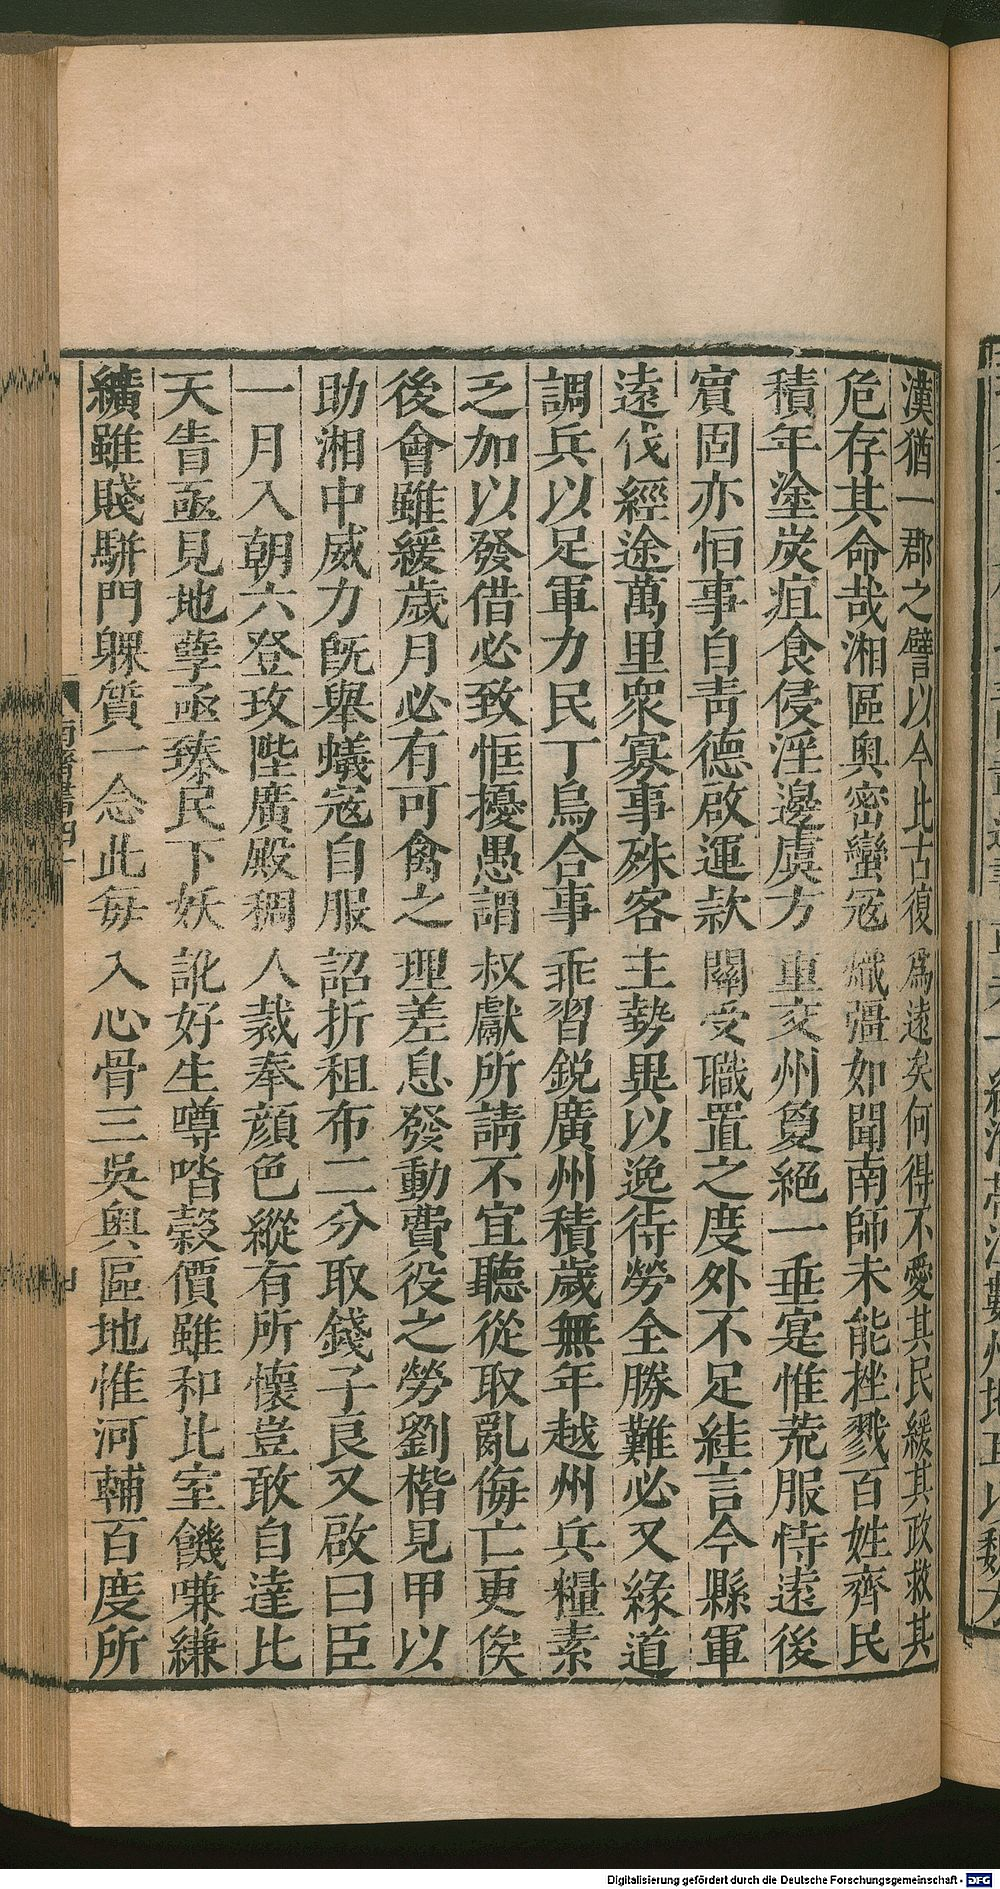 漢猶一郡之譬以今比古復爲遠矣何得不愛其民緩其政救其
危存其命哉湘區奧密蠻寇熾彊如聞南師未能挫戮百姓齊民
積年塗炭疽食侵淫邊虞方重交州夐絕一垂寔惟荒服恃遠後
賓固亦恒事自青德啟運款關受職置之度外不足絓言今縣軍
遠伐經途萬里衆寡事殊客主勢異以逸待勞全勝難必又緣道
調兵以足軍力民丁烏合事乖習銳廣州積歲無年越州兵糧素
乏加以發借必致恇擾愚謂叔獻所請不宜聽從取亂侮亡更俟
後會雖緩歲月必有可禽之理差息發動費役之勞劉楷見甲以
助湘中威力旣舉蟻寇自服詔折租布二分取錢子良又啟曰臣
一月入朝六登玫陛廣殿稠人裁奉顔色縱有所懷豈敢自達比
天眚亟見地孽亟臻民下妖訛好生噂㳫穀價雖和比室饑嗛縑
纊雖賤駢門躶質一念此每入心骨三吳奧區地惟河輔百度所
南齊書四十
Digitalisierung gefördert durch die Deutsche Forschungsgemeinschaft - DFG